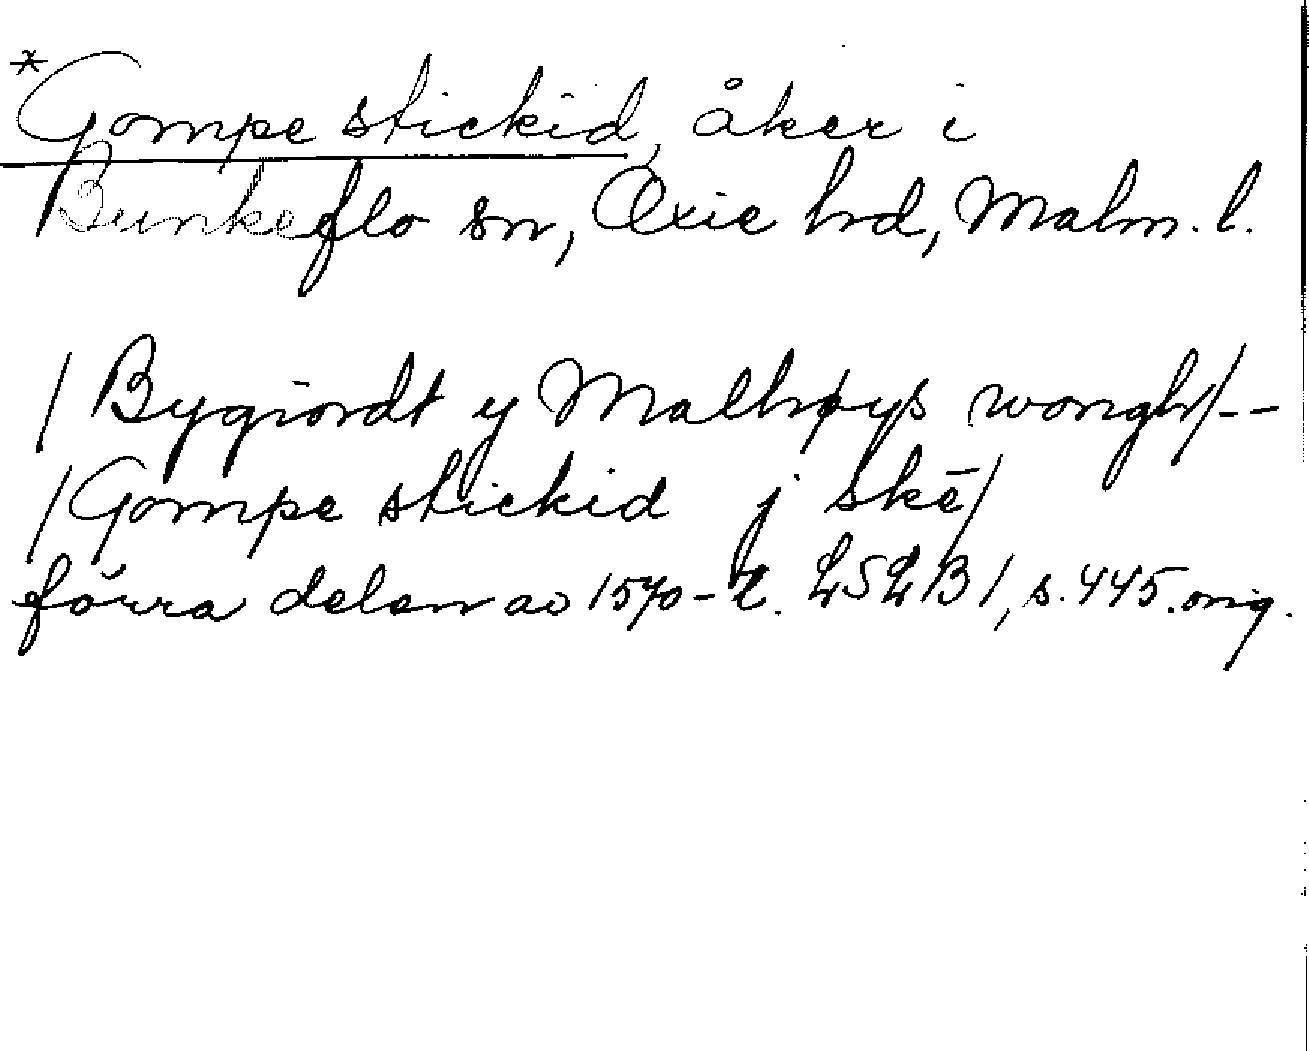 *Gompe stickid, åker i
Bunkeflo sn, Oxie hrd, Malm. l.
/Bygiordt y Malhøys wongh/--
/Gompe stickid j skē/
förra delen av 1570-t. LSLB1, s. 445. orig.